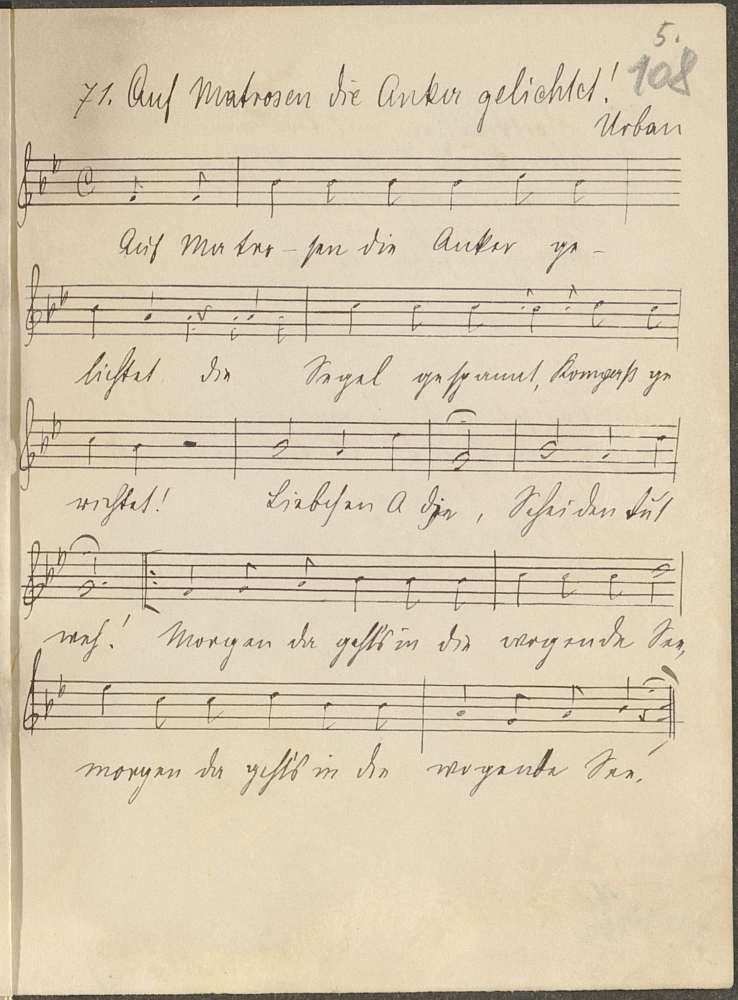 5.
108
71. Auf Matrosen die Anker gelichtet!
Urban
Auf Matro-sen die Anker ge-
lichtet die Segel gespannt, Kompaß ge
richtet! Liebchen Adje, Scheiden tut
weh! Morgen da gehts in die wogende See,
morgen da gehts in die wogende See!